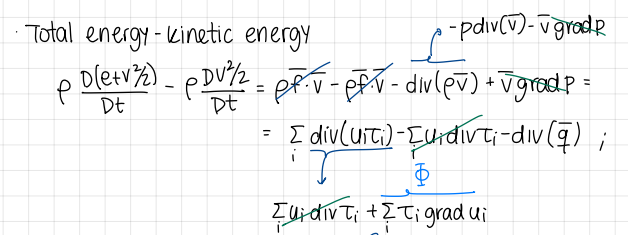 · Total energy - kinetic energy
-p div(v̅) - v̅ grad p
ρ D(e+v²/2)/Dt - ρ Dv²/2/Dt = ρf̅·v̅ - ρf̅·v̅ - div(ρv̅) + v̅ grad p =
= Σᵢ div(uᵢτᵢ) - Σᵢ uᵢ div τᵢ - div(q̅) ;
Φ
Σᵢ uᵢ div τᵢ + Σᵢ τᵢ grad uᵢ